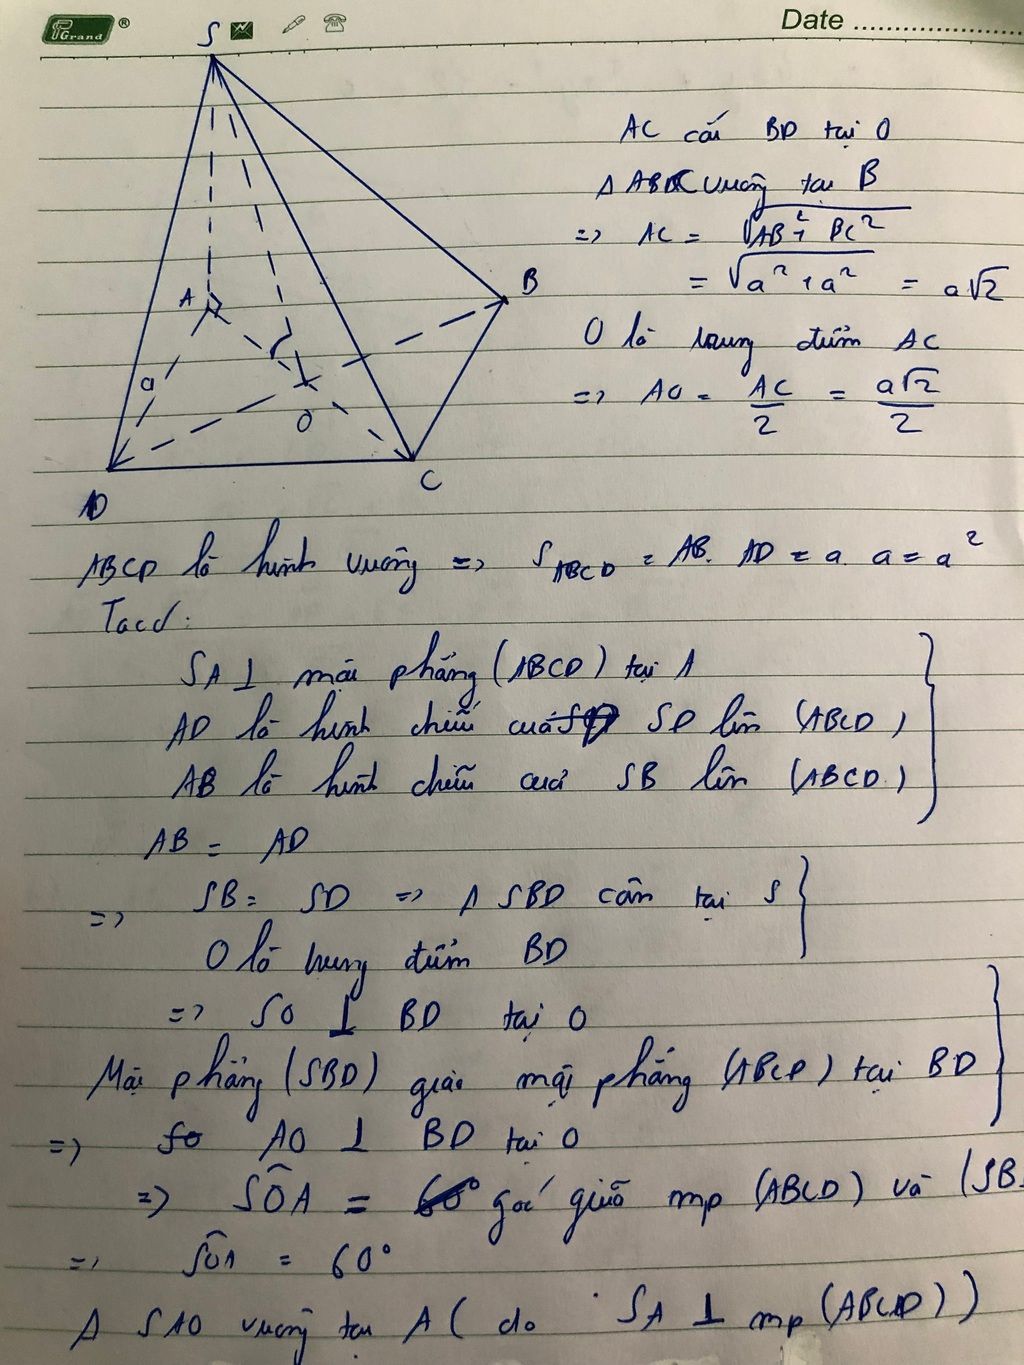 Grand ®
Date ....................
S
A
B
a
O
D
C
AC cắt BD tại O
Δ ABC vuông tại B
=> AC = √AB² + BC²
= √a² + a² = a√2
O là trung điểm AC
=> AO = AC/2 = a√2/2
ABCD là hình vuông => S ABCD = AB. AD = a. a = a²
Ta có:
SA ⊥ mặt phẳng (ABCD) tại A
AD là hình chiếu của SD lên (ABCD)
AB là hình chiếu của SB lên (ABCD)
AB = AD
=> SB = SD => Δ SBD cân tại S
O là trung điểm BD
=> SO ⊥ BD tại O
Mặt phẳng (SBD) giao mặt phẳng (ABCD) tại BD
=> AO ⊥ BD tại O
=> SÔA = góc giữa mp (ABCD) và (SB
=> SÔA = 60°
Δ SAO vuông tại A ( do SA ⊥ mp (ABCD))